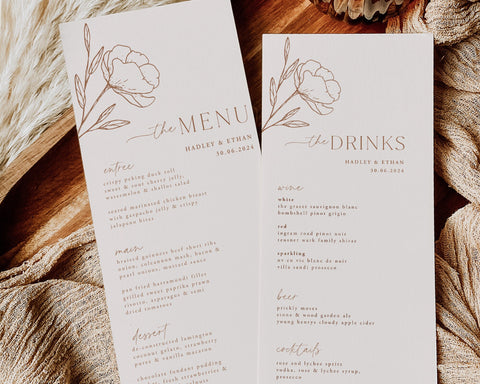 the MENU
HADLEY & ETHAN
30.06.2024
entree
crispy peking duck roll
sweet & sour cherry jelly,
watermelon & shallot salad
seared marinated chicken breast
with gazpacho jelly & crunchy
jalapeno bites
main
braised guinness beef short ribs
onion, colcannon mash, bacon &
pearl onions, mustard jus
pan fried barramundi fillet
smoked sweet paprika prawn
tian, asparagus & semi
dried tomatoes
dessert
de-constructed lamington
coconut gelato, strawberry
puree & vanilla mazarin
chocolate fondant pudding
the DRINKS
HADLEY & ETHAN
30.06.2024
wine
white
the grazet sauvignon blanc
bombshell pinot grigio
red
ingram road pinot noir
tensuner wark family shiraz
sparkling
nv en vic blanc de blanc
villa sandi prosecco
beer
prickly moses
stone & wood garden ale
young henrys cloudy apple cider
cocktails
rose and lychee spritz
vodka, rose & lychee syrup,
prosecco